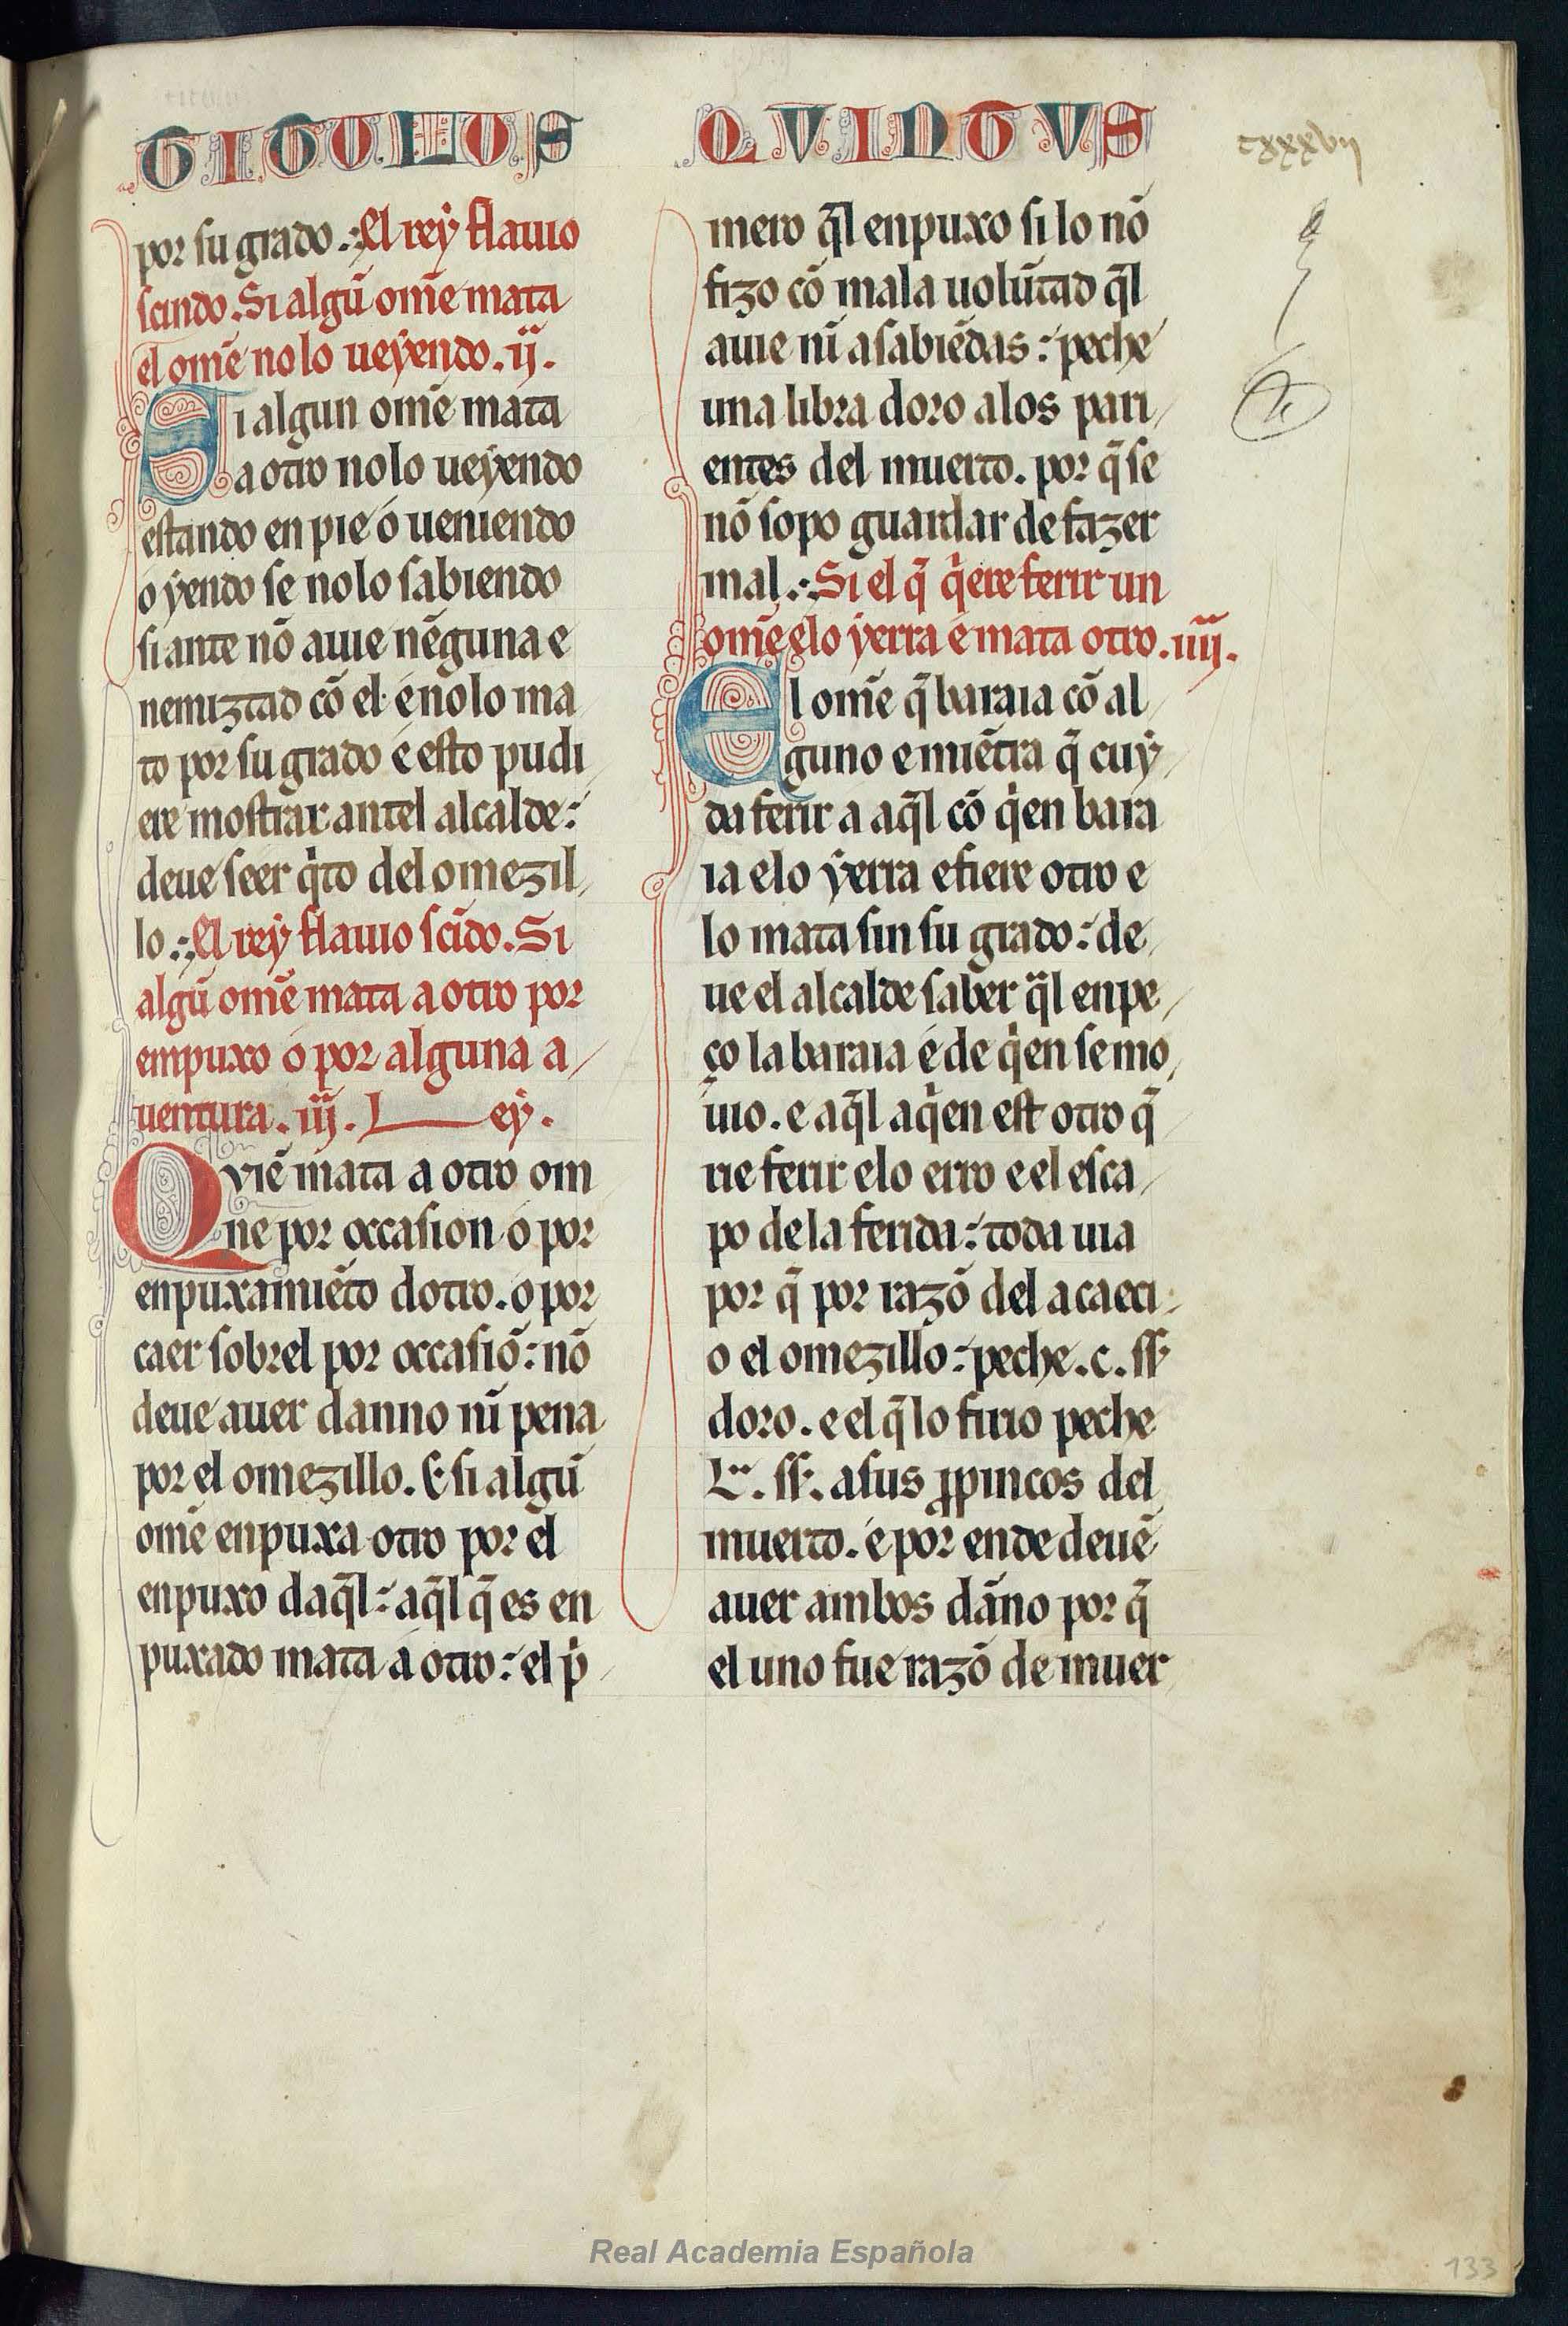 TITULUS QVINTVS
cxxxvij
por su grado.: El reẏ flauio
scindo. Si algũ om̃e mata
el om̃e no lo ueẏendo. ij.
Si algun om̃e mata
a otro no lo ueẏendo
estando en pie o ueniendo
o ẏendo se no lo sabiendo
si ante nõ auie nẽguna e
nemiztad cõ el. e ño lo ma
to por su grado e esto pudi
ere mostrar antel alcalde:
deue seer q̇to del omezil
lo.: El reẏ flauio scĩdo. Si
algũ om̃e mata a otro por
empuxo o por alguna a
uentura. iij. Ley.
Qviẽ mata a otro om
ne por occasion o por
enpuxamiẽto dotro. o por
caer sobrel por occasiõ: nõ
deue auer danno nĩ pena
por el omezillo. E si algũ
om̃e enpuxa otro por el
enpuxo daq̃l: aq̃l q̃ es en
puxado mata a otro: el ṗ
mero q̃l enpuxo si lo nõ
fizo cõ mala uolũtad q̃l
auie nĩ a sabiẽdas: peche
una libra doro a los pari
entes del muerto. por q̃ se
nõ sopo guardar de fazer
mal.: Si el q̃ q̇ere ferir un
om̃e elo ẏerra e mata otro. iiij.
El om̃e q̃ baraia cõ al
guno e miẽtra q̃ cuẏ
da ferir a aq̃l cõ q̇en bara
ia elo ẏerra e fiere otro e
lo mata sin su grado: de
ue el alcalde saber q̃l enpe
ço la baraia e de q̇en se mo
uio. e aq̃l aq̇en est otro q̃
rie ferir elo erro e el esca
po de la ferida: toda uia
por q̃ por razõ del acaeci
o el omezillo: peche. c. ss
doro. e el q̃ lo firio peche
L. ss. a sus ꝓpincos del
muerto. e por ende deuẽ
auer ambos dãno por q̃
el uno fue razõ de muer
Real Academia Española
133